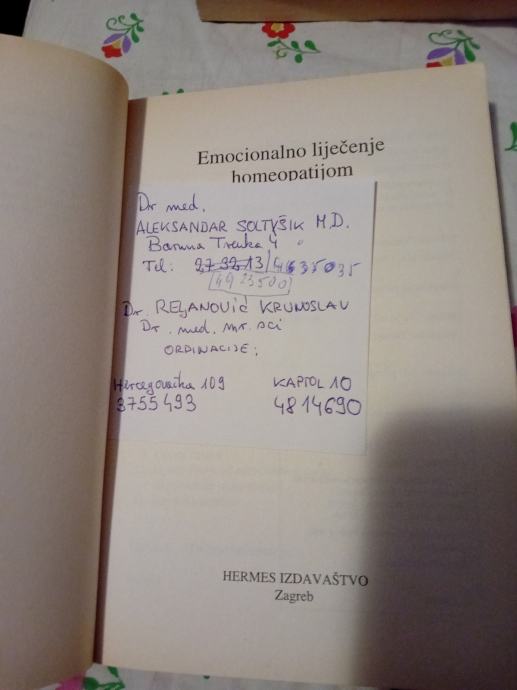 Emocionalno liječenje
homeopatijom
Dr med.
ALEKSANDAR SOLTYŠIK M.D.
Baruna Trenka 4
Tel: 27 32 13 / 4635035
4923500
Dr. RELJANOVIĆ KRUNOSLAV
Dr. med. mr. sci
ORDINACIJE:
Hercegovačka 109 KAPTOL 10
3755493 4814690
HERMES IZDAVAŠTVO
Zagreb